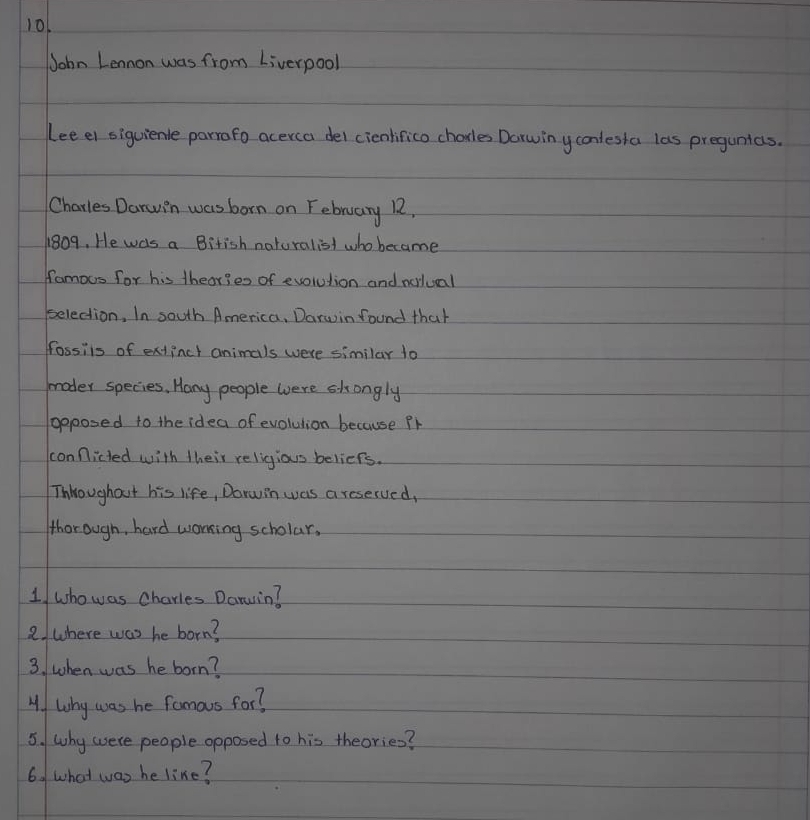 10.
John Lennon was from Liverpool
Lee el siguiente parrafo acerca del cientifico charles Darwin y contesta las preguntas.
Charles Darwin was born on February 12,
1809. He was a Bitish naturalist who became
famous for his theories of evolution and natural
selection. In south America, Darwin found that
fossils of extinct animals were similar to
moder species. Many people were strongly
opposed to the idea of evolution because it
conflicted with their religious beliefs.
Throughout his life, Darwin was a reserved,
thorough, hard working scholar.
1. Who was Charles Darwin?
2. Where was he born?
3. when was he born?
4. Why was he famous for?
5. Why were people opposed to his theories?
6. What was he like?